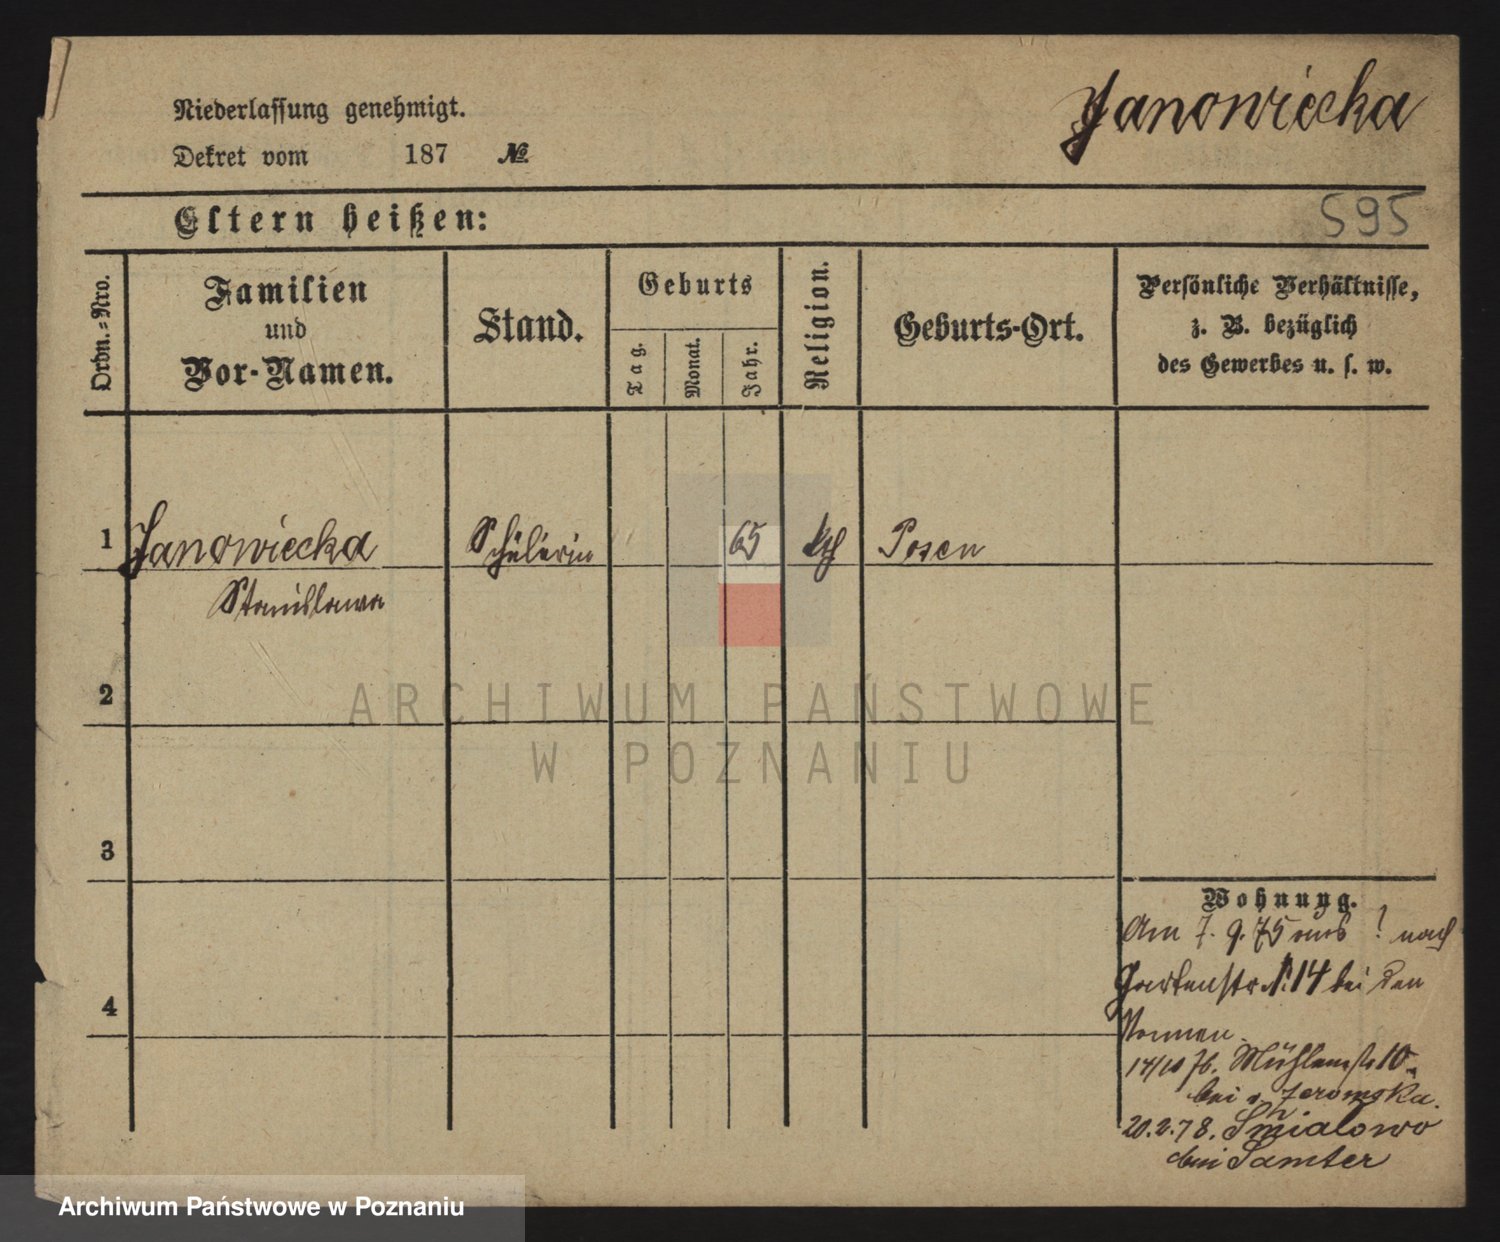 Janowiecka
Niederlassung genehmigt.
Dekret vom 187 №
Eltern heißen:
595
Ordn.-Nro.
Familien
und
Vor-Namen.
Stand.
Geburts
Tag.
Monat.
Jahr.
Religion.
Geburts-Ort.
Persönliche Verhältnisse,
z. B. bezüglich
des Gewerbes u. s. w.
1 Janowiecka Schülerin 65 kth Posen
Stanislawa
2
3
4
Wohnung.
Am 7. 9. 75 aus ? nach
Gartenstr. N. 14 bei den
Nonnen.
14/10 76. Mühlenstr 10.
bei v. Zeromska.
20.2.78. Smialowo
bei Samter
ARCHIWUM PAŃSTWOWE
W POZNANIU
Archiwum Państwowe w Poznaniu